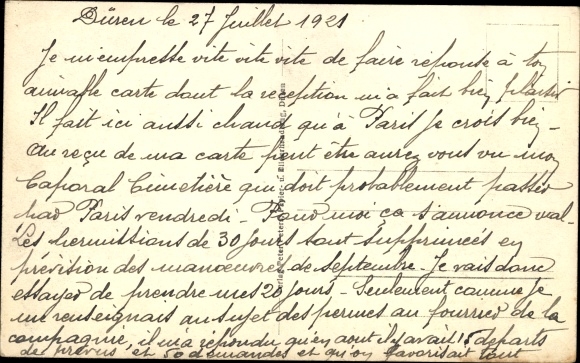 Düren le 27 Juillet 1921
Je m'empresse vite vite vite de faire réponse à ton
aimable carte dont la réception m'a fait bien plaisir
Il fait ici aussi chaud qu'à Paris je crois bien -
Au reçu de ma carte peut être aurez vous vu mon
Caporal Cimetière qui doit probablement passer
par Paris vendredi - Pour moi ça s'annonce mal -
Les permissions de 30 jours sont supprimées en
prévision des manœuvres de septembre - Je vais donc
essayer de prendre mes 20 jours - Seulement comme je
me renseignais au sujet des permes au fourrier de la
compagnie, il m'a répondu qu'en aout il y avait 15 départs
de prévus et 50 demandes et qu'on favorisait tout